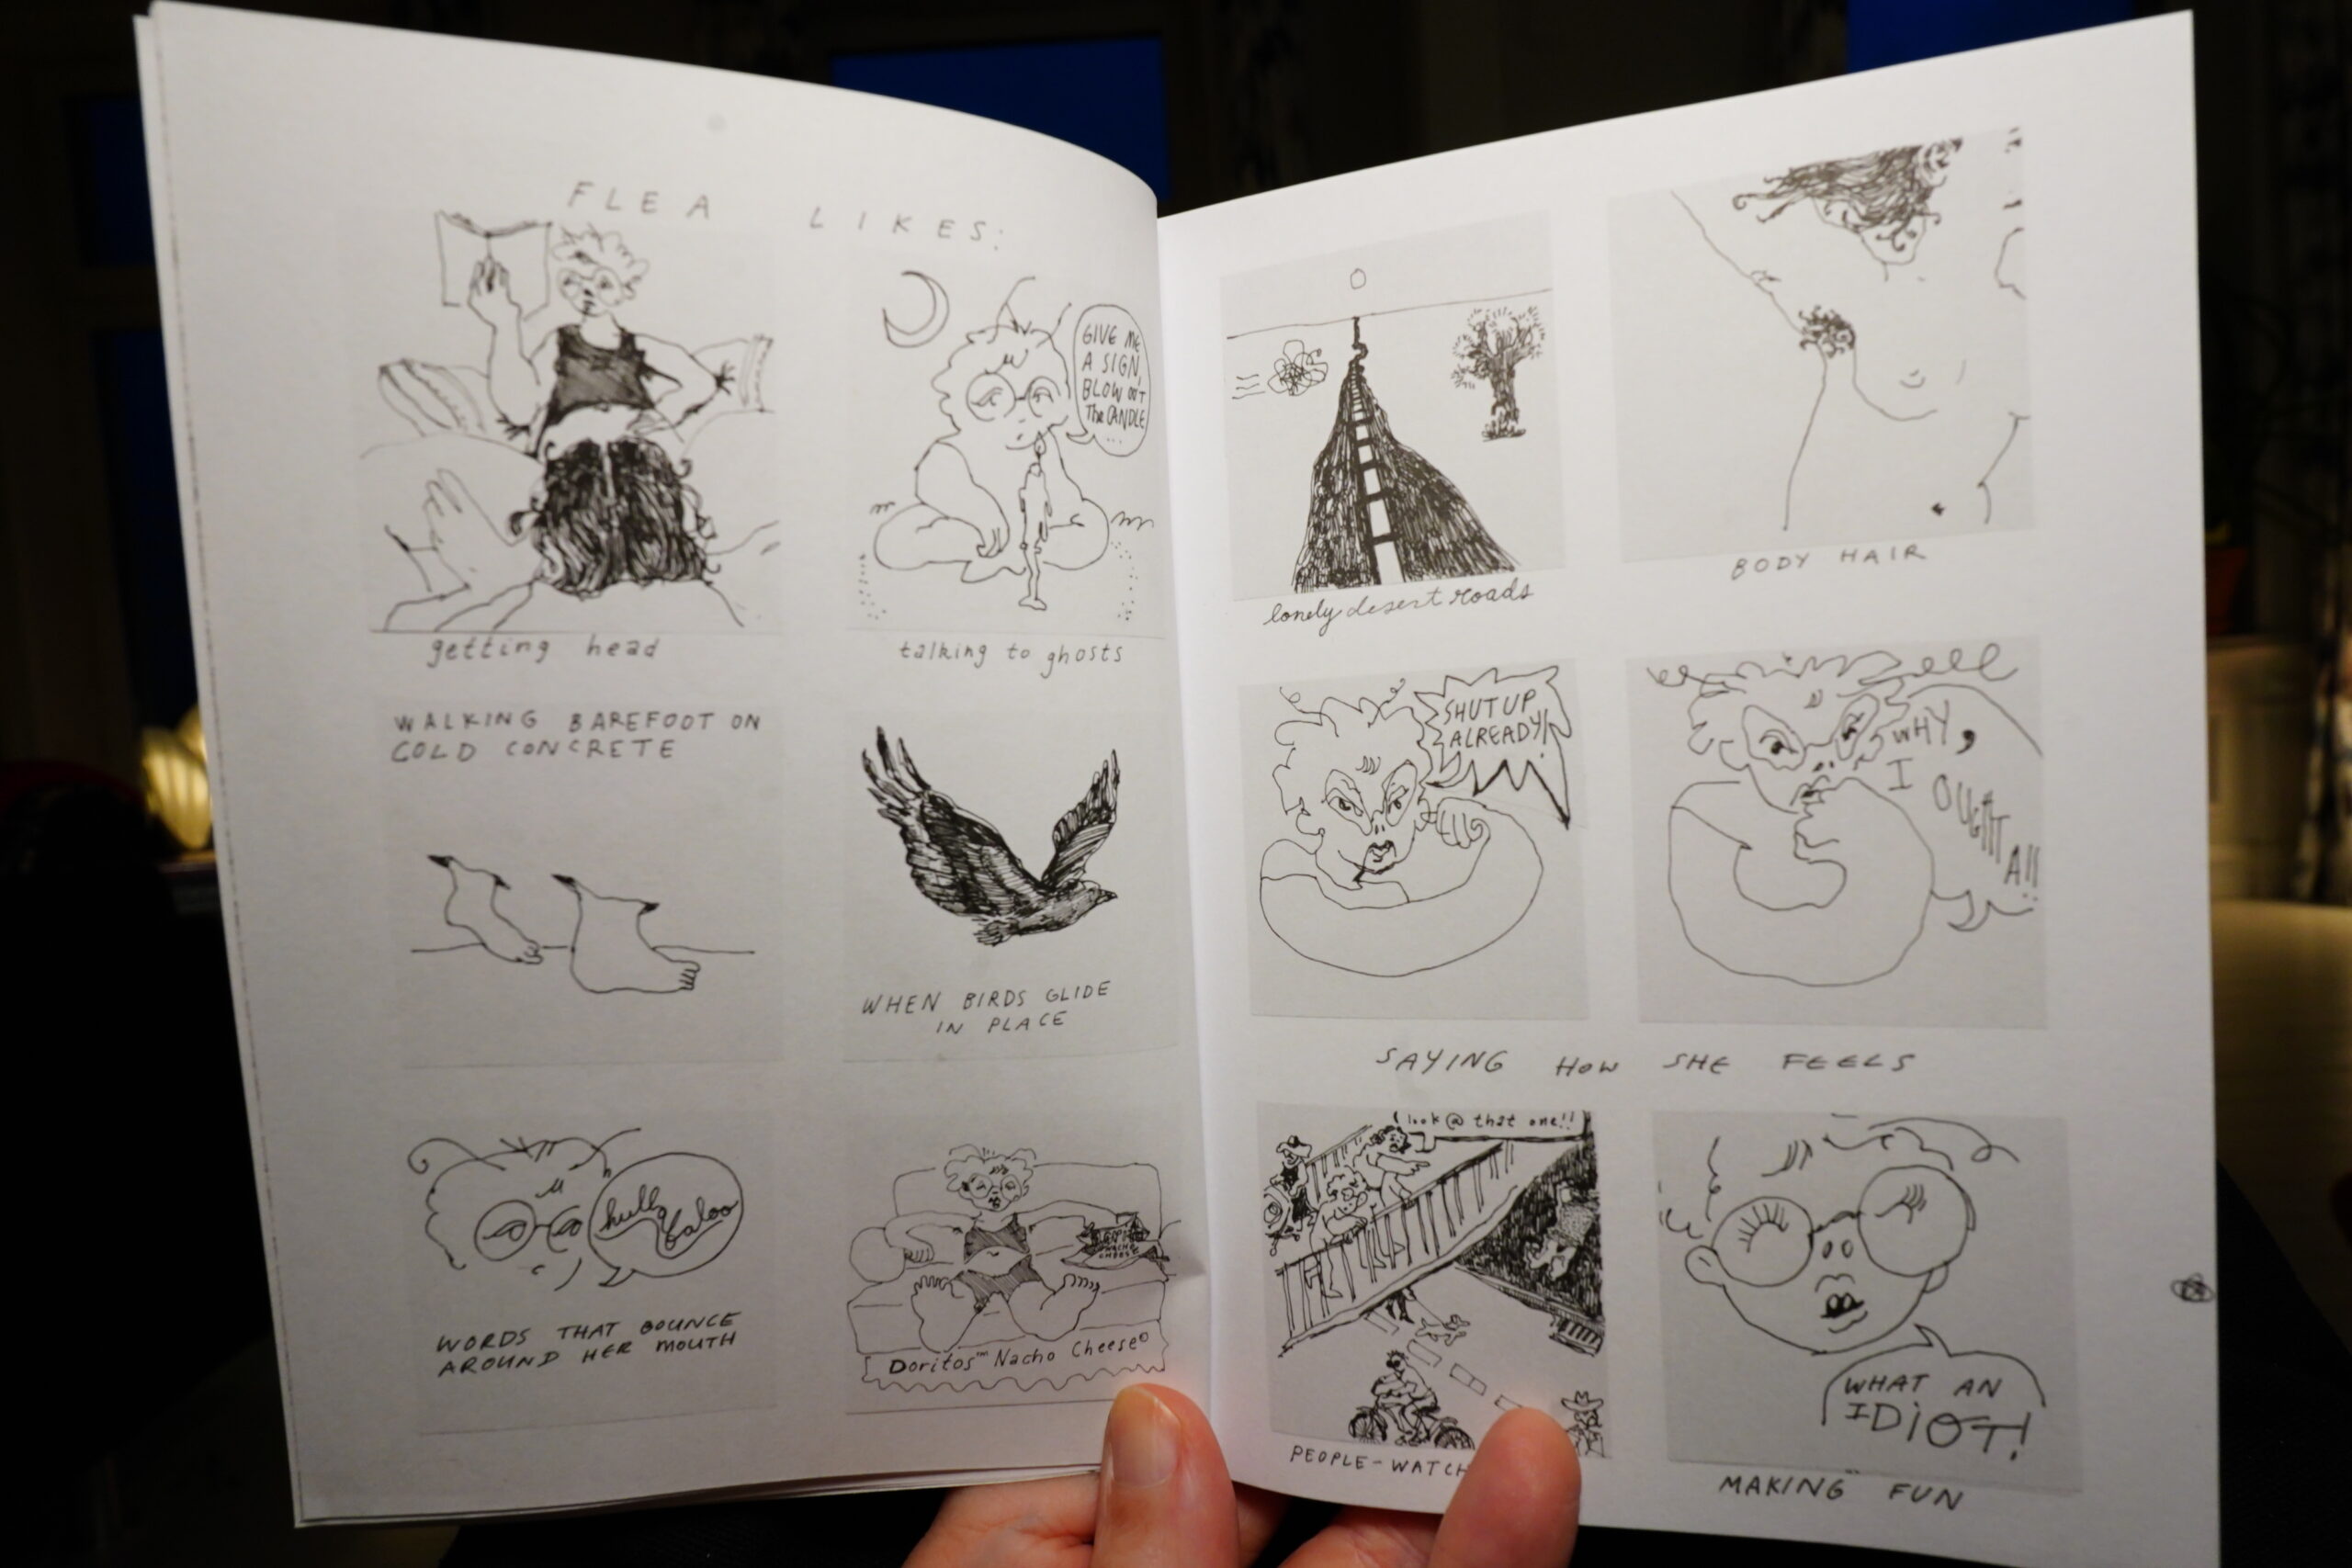 FLEA LIKES:
GIVE ME
A SIGN,
BLOW OUT
The CANDLE
...
getting head
talking to ghosts
WALKING BAREFOOT ON
COLD CONCRETE
WHEN BIRDS GLIDE
IN PLACE
hulla
baloo
WORDS THAT BOUNCE
AROUND HER MOUTH
NACHO
CHEESE
Doritos™ Nacho Cheese©
lonely desert roads
BODY HAIR
SHUT UP
ALREADY!
WHY,
I
OUGHTTA!!
SAYING HOW SHE FEELS
look @ that one!!
PEOPLE-WATCH
WHAT AN
IDiOT!
MAKING FUN